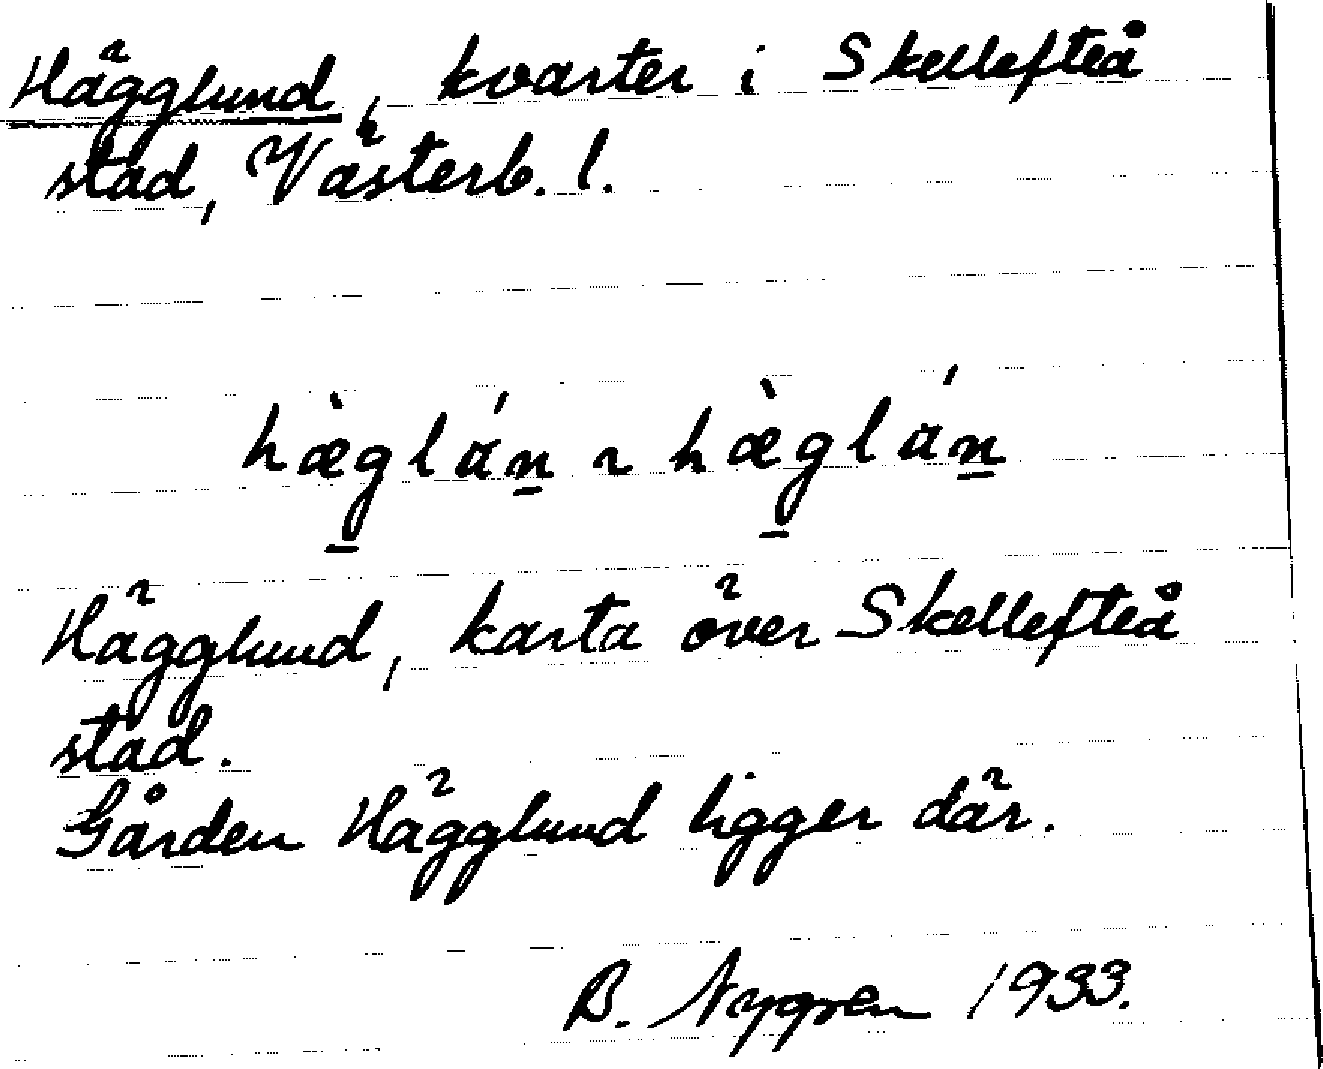 Hägglund, kvarter i Skellefteå
stad, Västerb. l.
hæ̀g̲lán̲ ~ hæ̀g̲lán̲
Hägglund, karta över Skellefteå
stad.
Gården Hägglund ligger där.
B. Nygren 1933.